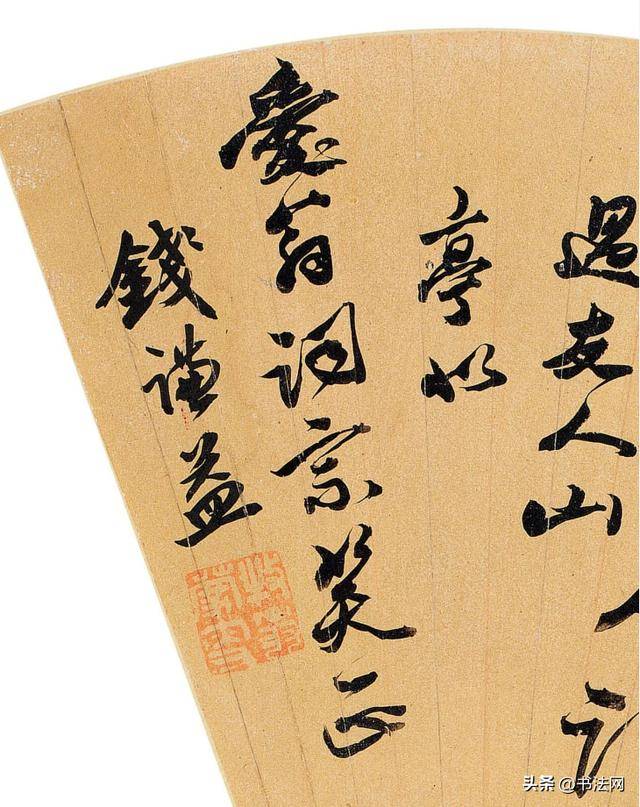 過友人山
亭似
愛翁詞宗笑正
錢謙益
头条 @书法网